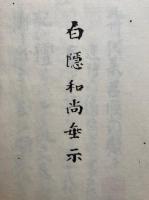 白隱和尚垂示